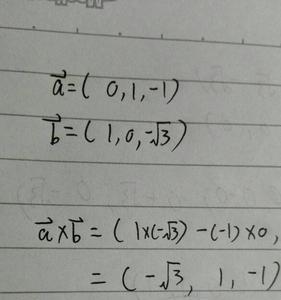 a⃗=( 0,1,-1)
b⃗=( 1,0,-√3)
a⃗×b⃗=( 1×(-√3) -(-1)×0,
=( -√3, 1, -1)